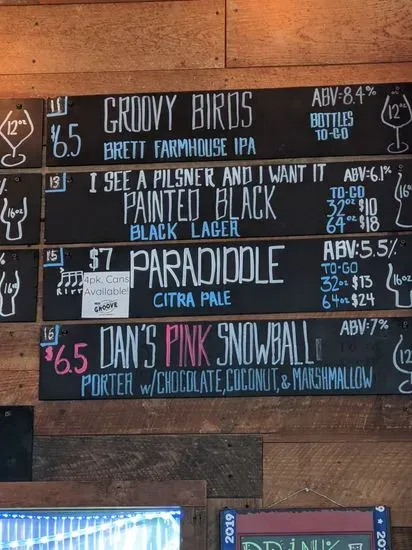 12oz
GROOVY BIRDS
ABV=8.4%
12oz
$6.5
BRETT FARMHOUSE IPA
BOTTLES
TO-GO
13
I SEE A PILSNER AND I WANT IT
ABV=6.1%
16oz
PAINTED BLACK
BLACK LAGER
TO-GO
32oz $10
64oz $18
16oz
15
$7
PARADIDDLE
ABV=5.5%
4pk. Cans
Available!
GROOVE
CITRA PALE
TO-GO
32oz $13
64oz $24
16oz
16
$6.5
DAN'S PINK SNOWBALL
ABV=7%
12oz
PORTER W/CHOCOLATE, COCONUT, & MARSHMALLOW
2019
DRINK